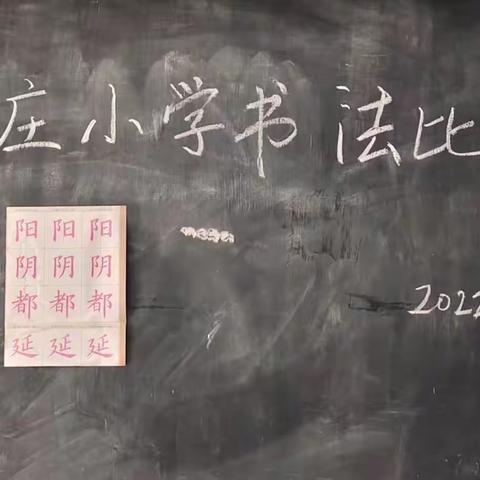 庄小学书法比
阳阳阳
阴阴阴
都都都
延延延
2022